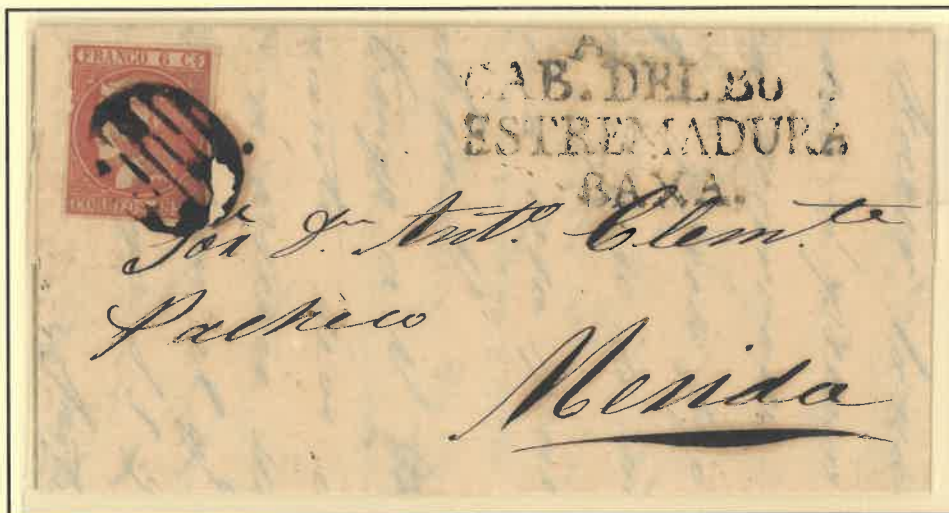 FRANCO 6 Cs
CORREOS
A
CAB. DEL BU
ESTREMADURA
BAXA.
Sor Dn. Anto. Clemte
Pacheco
Merida